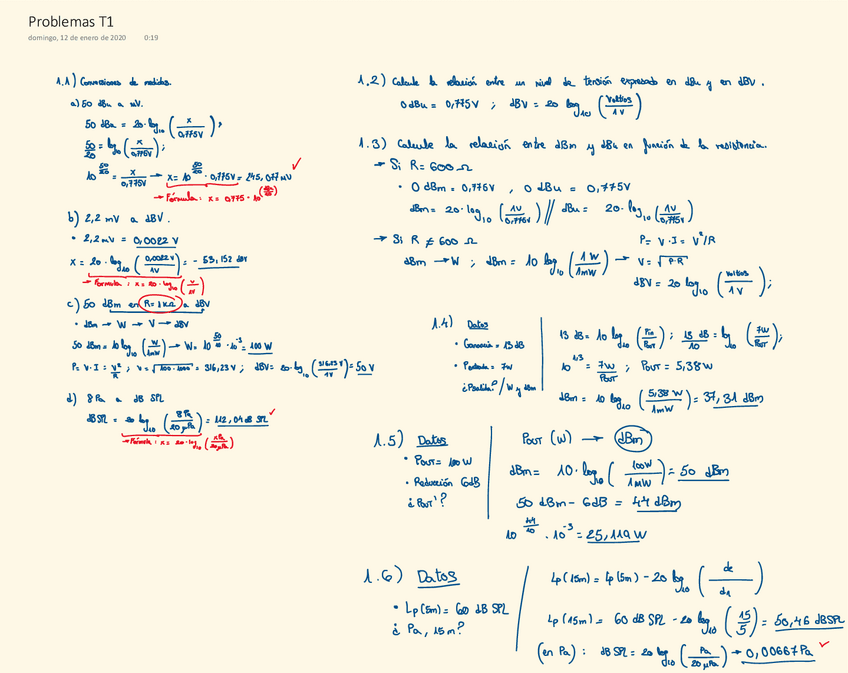 Problemas T1
domingo, 12 de enero de 2020 0:19
1.1) Conversiones de medidas.
a) 50 dBu a mV.
50 dBu = 20·log₁₀ (x / 0,775V) ;
50/20 = log₁₀ (x / 0,775V) ;
10^(50/20) = x / 0,775V → x = 10^(50/20) · 0,775V = 245,077 mV ✓
→ Fórmula: x = 0,775 · 10^(50/20)
b) 2,2 mV a dBV.
• 2,2 mV = 0,0022 V
x = 20·log₁₀ (0,0022 V / 1V) = - 53,152 dBV
→ Fórmula: x = 20·log₁₀ (V / 1V)
c) 50 dBm en R=1kΩ a dBV
• dBm → W → V → dBV
50 dBm = 10 log₁₀ (W / 1mW) → W = 10^(50/10) · 10⁻³ = 100 W
P = V·I = V²/R ; V = √(100·1000) = 316,23 V ; dBV = 20·log₁₀ (316,23 V / 1V) = 50 V
d) 8 Pa a dB SPL
dB SPL = 20 log₁₀ (8 Pa / 20 µPa) = 112,04 dB SPL ✓
→ Fórmula: x = 20·log₁₀ (xPa / 20µPa)
1.2) Calcule la relación entre un nivel de tensión expresado en dBu y en dBV.
0 dBu = 0,775 V ; dBV = 20 log₁₀ (Voltios / 1V)
1.3) Calcule la relación entre dBm y dBu en función de la resistencia.
→ Si R = 600 Ω
• 0 dBm = 0,775V , 0 dBu = 0,775V
dBm = 20·log₁₀ (1V / 0,775V) // dBu = 20·log₁₀ (1V / 0,775V)
→ Si R ≠ 600 Ω
P = V·I = V²/R
dBm → W ; dBm = 10 log₁₀ (1 W / 1mW) → V = √(P·R)
dBV = 20 log₁₀ (Voltios / 1V) ;
1.4) Datos
• Ganancia = 13 dB
• Potencia = 7W
¿Psalida? / W y dBm
13 dB = 10 log₁₀ (Pin / Pout) ; 13 dB / 10 = log₁₀ (7W / Pout) ;
10^(1,3) = 7W / Pout ; Pout = 5,38W
dBm = 10 log₁₀ (5,38 W / 1mW) = 37,31 dBm
1.5) Datos
• Pout = 100 W
• Reducción 6dB
¿Pout'?
Pout (W) → dBm
dBm = 10·log₁₀ (100W / 1MW) = 50 dBm
50 dBm - 6 dB = 44 dBm
10^(44/10) · 10⁻³ = 25,119 W
1.6) Datos
• Lp(5m) = 60 dB SPL
¿ Pa, 15m?
Lp(15m) = Lp(5m) - 20 log₁₀ (d2 / d1)
Lp(15m) = 60 dB SPL - 20 log₁₀ (15 / 5) = 50,46 dBSPL
(en Pa) : dB SPL = 20 log₁₀ (Pa / 20 µPa) → 0,00667 Pa ✓